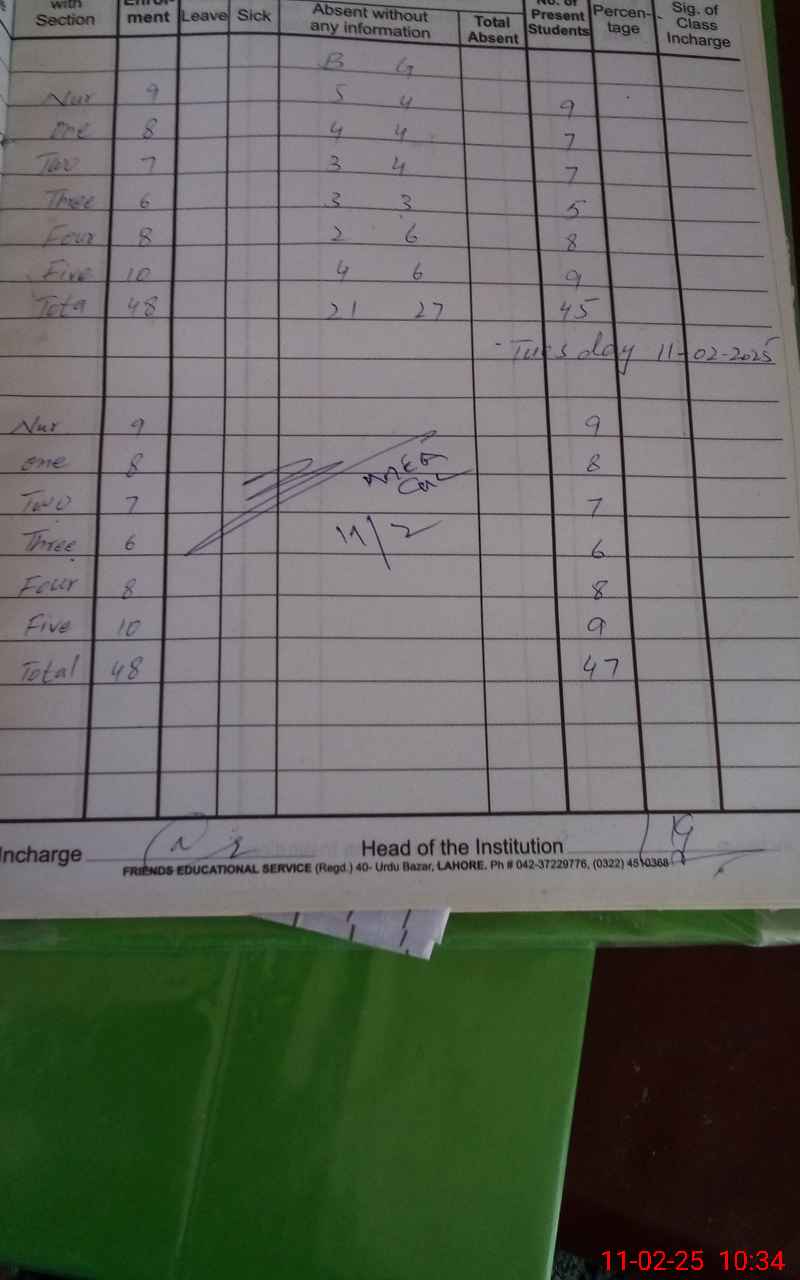 with Section Enrol-ment Leave Sick Absent without any information Total Absent No. of Present Students Percen-tage Sig. of Class Incharge
B G
Nur 9 5 4 9
one 8 4 4 7
Two 7 3 4 7
Three 6 3 3 5
Four 8 2 6 8
Five 10 4 6 9
Tota 48 21 27 45
Tuesday 11-02-2025
Nur 9 9
one 8 8
Two 7 7
Three 6 6
11/2
Four 8 8
Five 10 9
Total 48 47
Incharge Head of the Institution
FRIENDS EDUCATIONAL SERVICE (Regd.) 40- Urdu Bazar, LAHORE. Ph # 042-37229776, (0322) 4510368
11-02-25 10:34